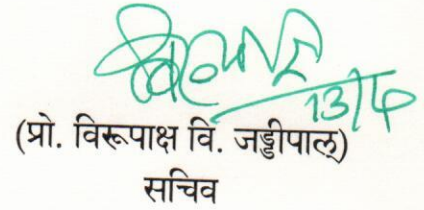 13/4
(प्रो. विरूपाक्ष वि. जड्डीपाल्)
सचिव